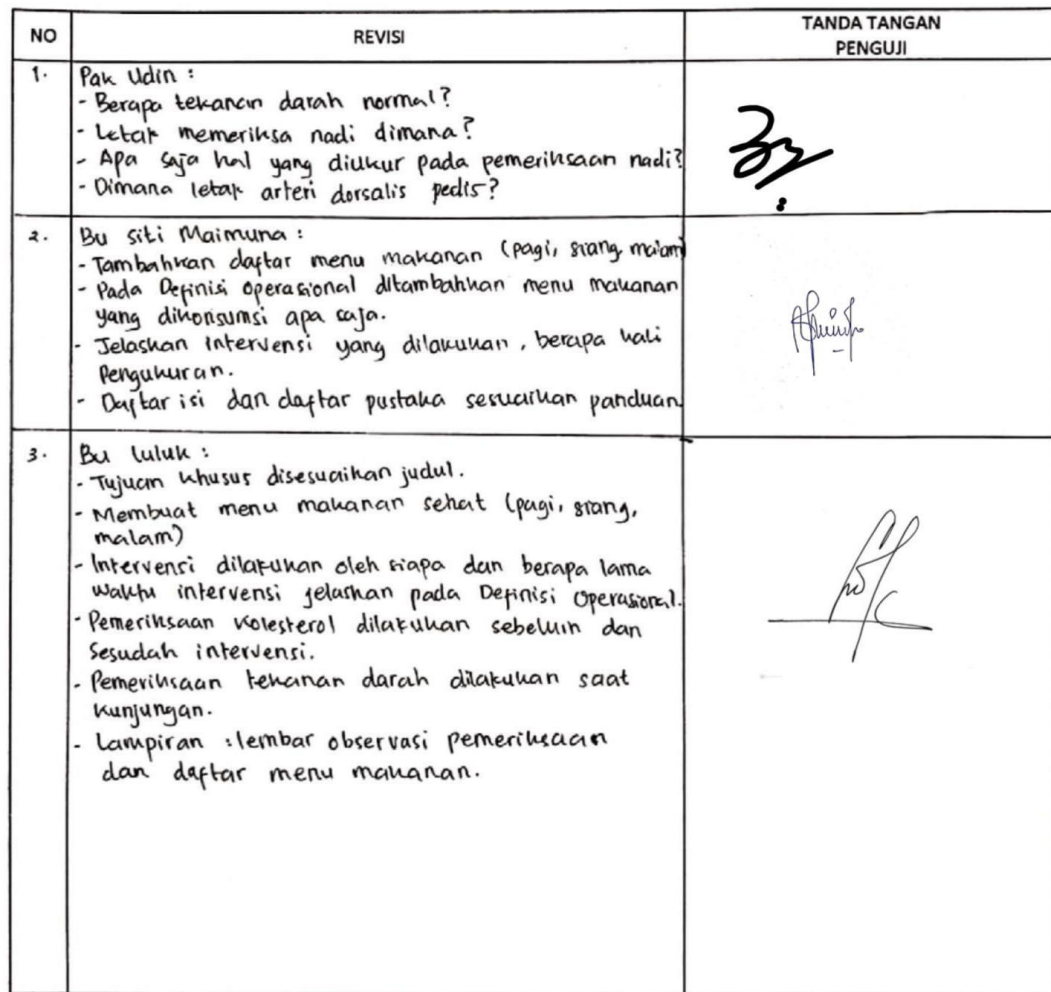 NO REVISI TANDA TANGAN
PENGUJI
1. Pak Udin :
- Berapa tekanan darah normal?
- Letak memeriksa nadi dimana?
- Apa saja hal yang diukur pada pemeriksaan nadi?
- Dimana letak arteri dorsalis pedis?
2. Bu Siti Maimuna :
- Tambahkan daftar menu makanan (pagi, siang, malam)
- Pada Definisi operasional ditambahkan menu makanan
yang dikonsumsi apa saja.
- Jelaskan intervensi yang dilakukan, berapa kali
Pengukuran.
- Daftar isi dan daftar pustaka sesuaikan panduan
3. Bu luluk :
- Tujuan khusus disesuaikan judul.
- Membuat menu makanan sehat (pagi, siang,
malam)
- Intervensi dilakukan oleh siapa dan berapa lama
waktu intervensi jelaskan pada Definisi Operasional.
- Pemeriksaan kolesterol dilakukan sebelum dan
sesudah intervensi.
- Pemeriksaan tekanan darah dilakukan saat
kunjungan.
- Lampiran : lembar observasi pemeriksaan
dan daftar menu makanan.